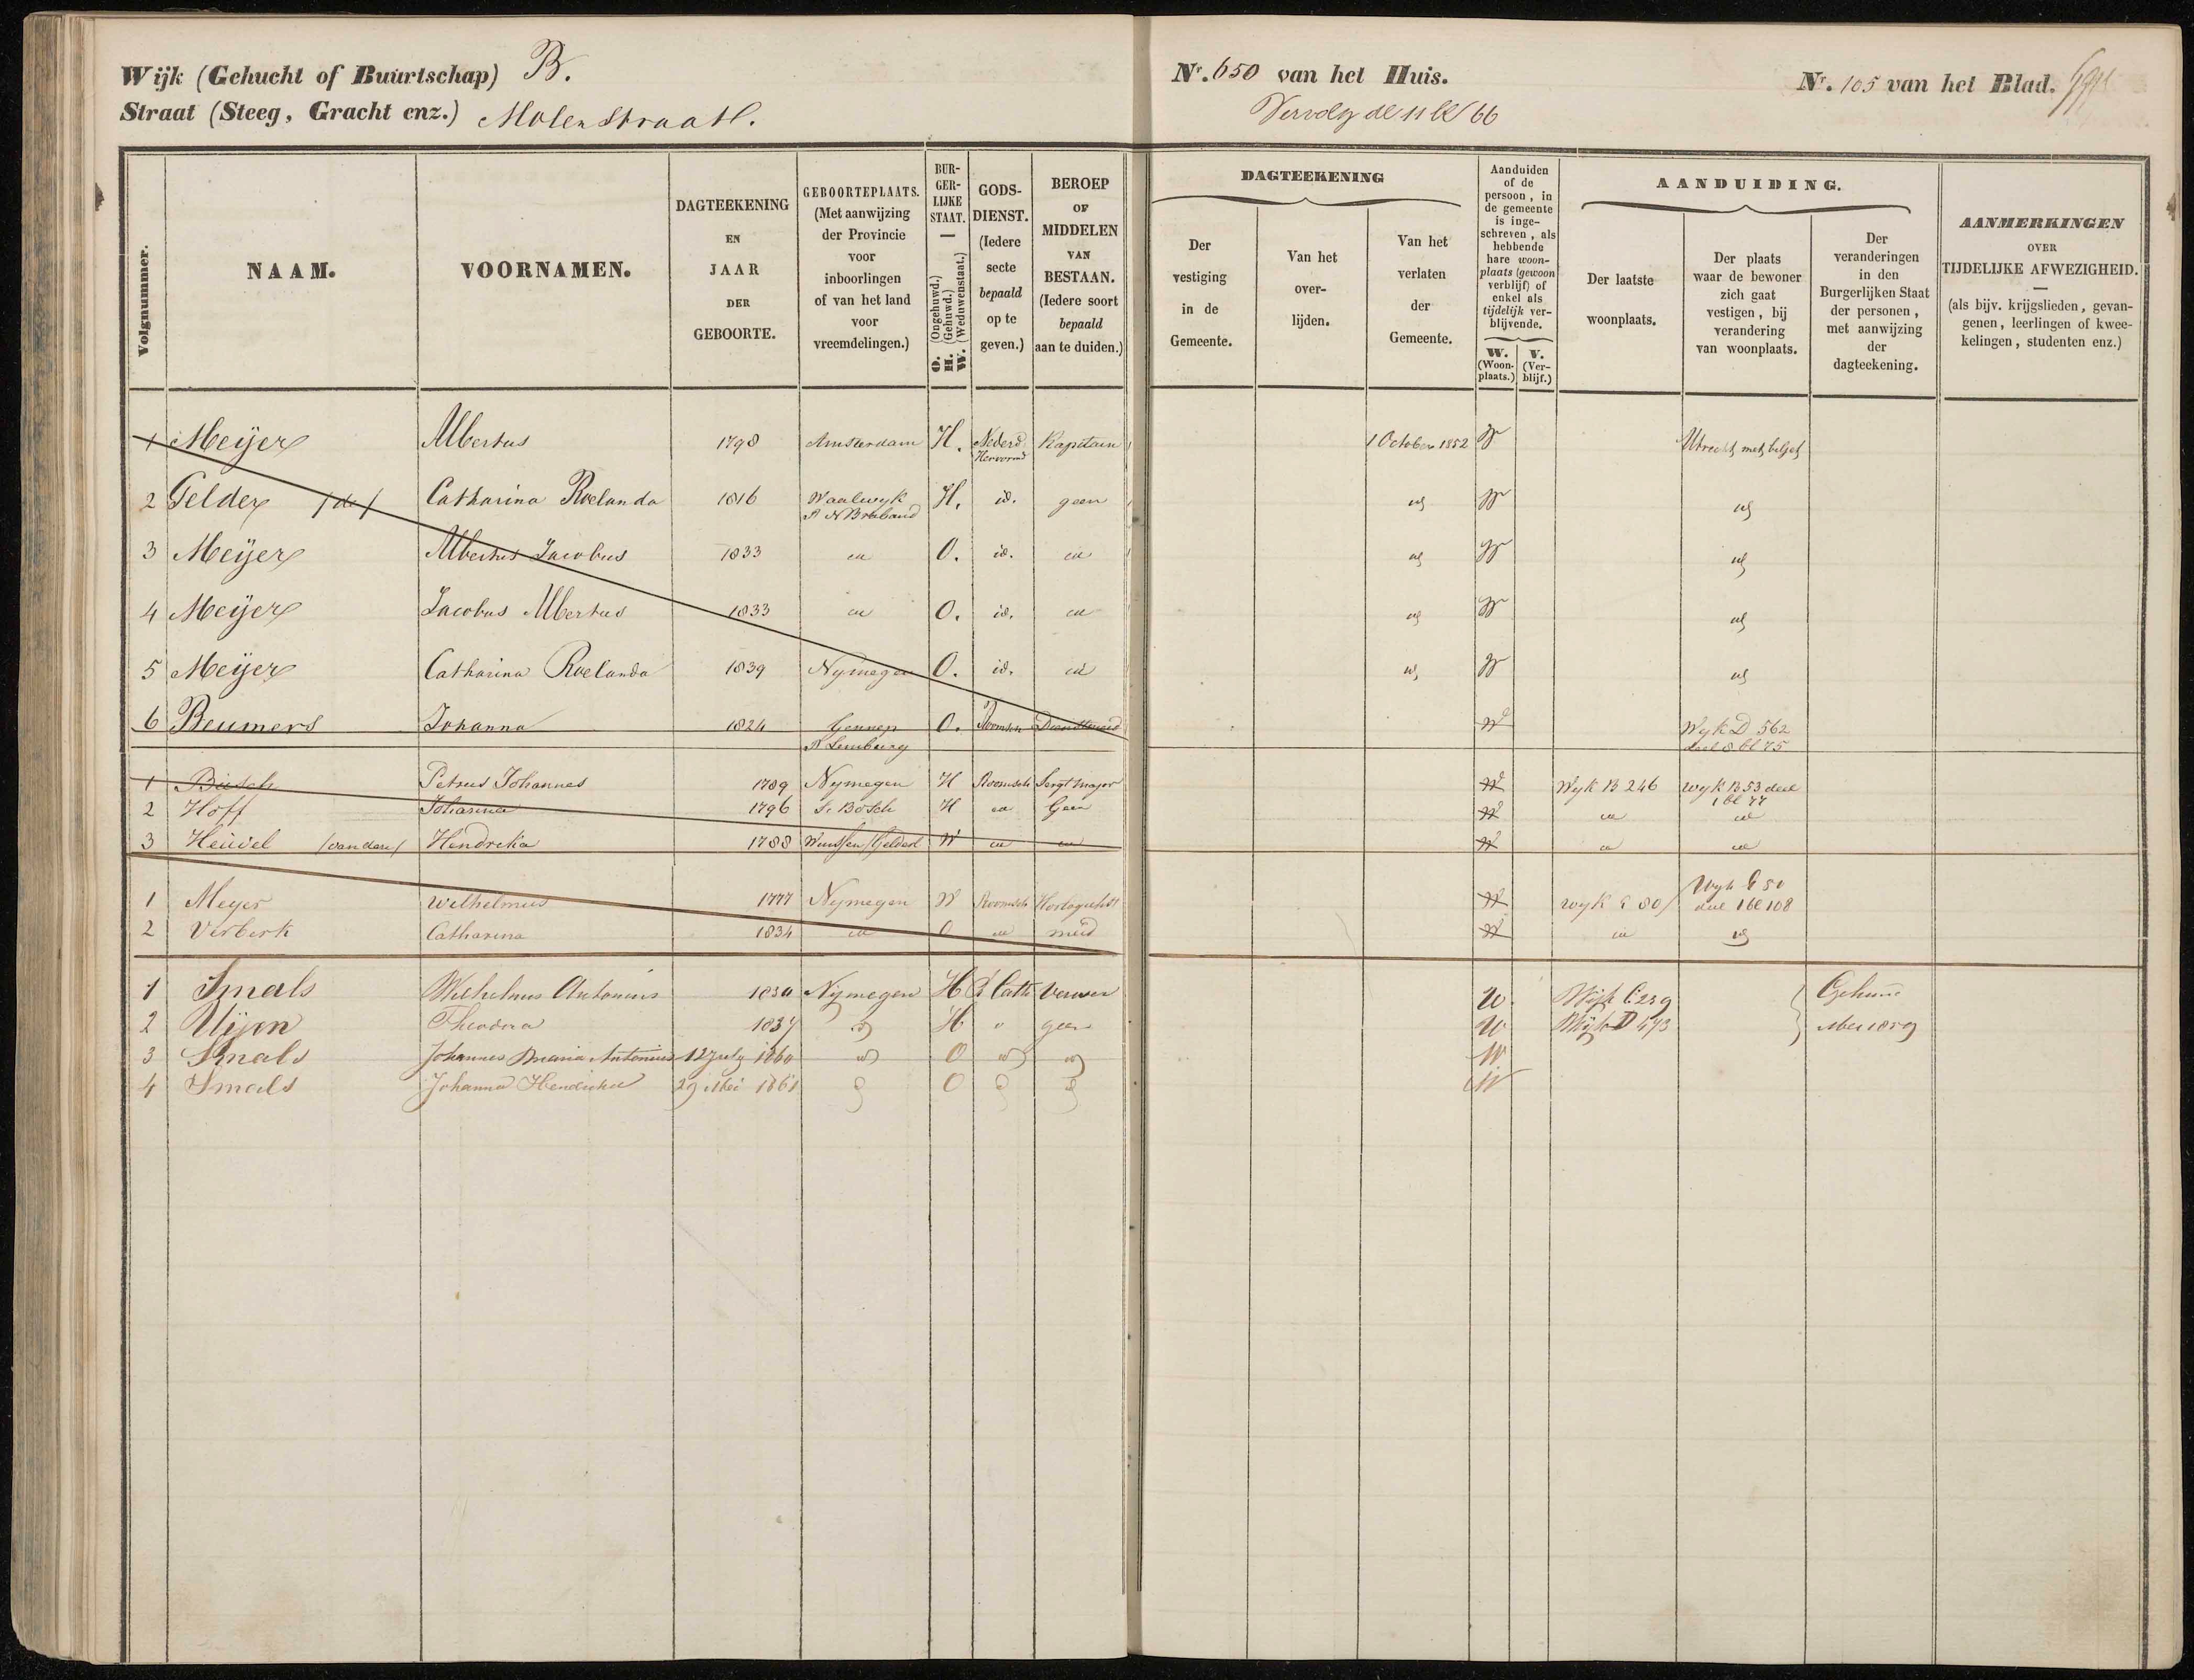 Wijk (Gehucht of Buurtschap) B.
Straat (Steeg, Gracht enz.) Molenstraat.
Nr. 650 van het Huis.
Vervolg deel 11 bl 66
Nr. 105 van het Blad.
Volgnummer.
NAAM.
VOORNAMEN.
DAGTEEKENING
EN
JAAR
DER
GEBOORTE.
GEBOORTEPLAATS.
(Met aanwijzing
der Provincie
voor
inboorlingen
of van het land
voor
vreemdelingen.)
BUR-
GER-
LIJKE
STAAT.
—
O. (Ongehuwd.)
H. (Gehuwd.)
W. (Weduwenstaat.)
GODS-
DIENST.
(Iedere
secte
bepaald
op te
geven.)
BEROEP
OF
MIDDELEN
VAN
BESTAAN.
(Iedere soort
bepaald
aan te duiden.)
DAGTEEKENING
Der
vestiging
in de
Gemeente.
Van het
over-
lijden.
Van het
verlaten
der
Gemeente.
Aanduiden
of de
persoon, in
de gemeente
is inge-
schreven, als
hebbende
hare woon-
plaats (gewoon
verblijf) of
enkel als
tijdelijk ver-
blijvende.
W.
(Woon-
plaats.)
V.
(Ver-
blijf.)
AANDUIDING.
Der laatste
woonplaats.
Der plaats
waar de bewoner
zich gaat
vestigen, bij
verandering
van woonplaats.
Der
veranderingen
in den
Burgerlijken Staat
der personen,
met aanwijzing
der
dagteekening.
AANMERKINGEN
OVER
TIJDELIJKE AFWEZIGHEID.
—
(als bijv. krijgslieden, gevan-
genen, leerlingen of kwee-
kelingen, studenten enz.)
1 Meijer Albertus 1798 Amsterdam H. Nederd Hervormd Kapitain 1 October 1852 W Utrecht met biljet
2 Gelder /de/ Catharina Roelanda 1816 Waalwyk P N Braband H. id. geen id W id
3 Meijer Albertus Jacobus 1833 id O. id. id id W id
4 Meijer Jacobus Albertus 1833 id O. id. id id W id
5 Meijer Catharina Roelanda 1839 Nymegen O. id. id id W id
6 Beumers Johanna 1824 Gennep P Limburg O. Roomsch Dienstmeid W Wyk D 562 deel 8 bl 75
1 Busch Petrus Johannes 1789 Nymegen H Roomsch Sergt Major W Wyk B 246 Wyk B 53 deel 1 bl 77
2 Hoff Johanna 1796 S. Bosch H id Geen W id id
3 Heuvel /van den/ Hendrika 1788 Winssen Gelderl W id id W id id
1 Meyer Wilhelmus 1777 Nymegen W Roomsch Horlogiehdr W Wyk C 80 Wyk C 50 deel 1 bl 108
2 Verberk Catharina 1834 id O id meid W id id
1 Smals Wilhelmus Antonius 1830 Nijmegen H R Cath Verwer W Wijk C 239 Gehuwd
2 Uijen Theodora 1837 id H " geen W Wijk D 473 Mei 1859
3 Smals Johannes Maria Antonius 12 July 1860 id O id id W
4 Smals Johanna Hendrika 29 Mei 1861 O W